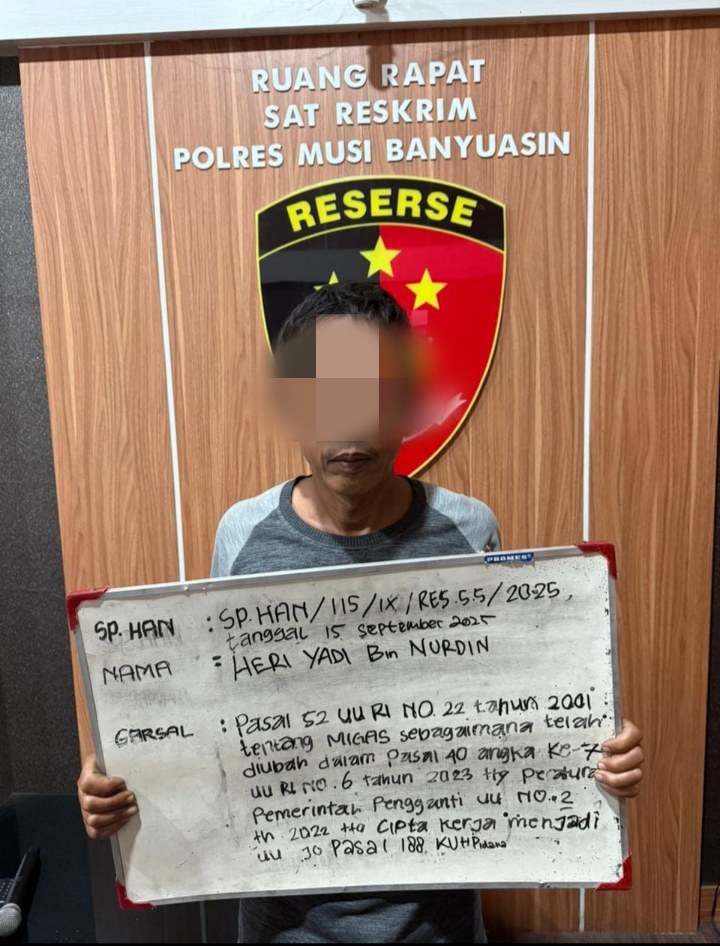 RUANG RAPAT
SAT RESKRIM
POLRES MUSI BANYUASIN
RESERSE
PROMES
SP. HAN : SP. HAN / 115 / IX / RES. 5.5 / 2025,
tanggal 15 September 2025
NAMA = HERI YADI Bin NURDIN
GARSAL : Pasal 52 UU RI NO. 22 tahun 2001
tentang MIGAS sebagaimana telah
diubah dalam Pasal 40 angka Ke-7
UU RI NO. 6 tahun 2023 ttg Peratura
Pemerintah Pengganti UU NO. 2
th. 2022 ttg Cipta Kerja menjadi
UU JO Pasal 188 KUHPidana